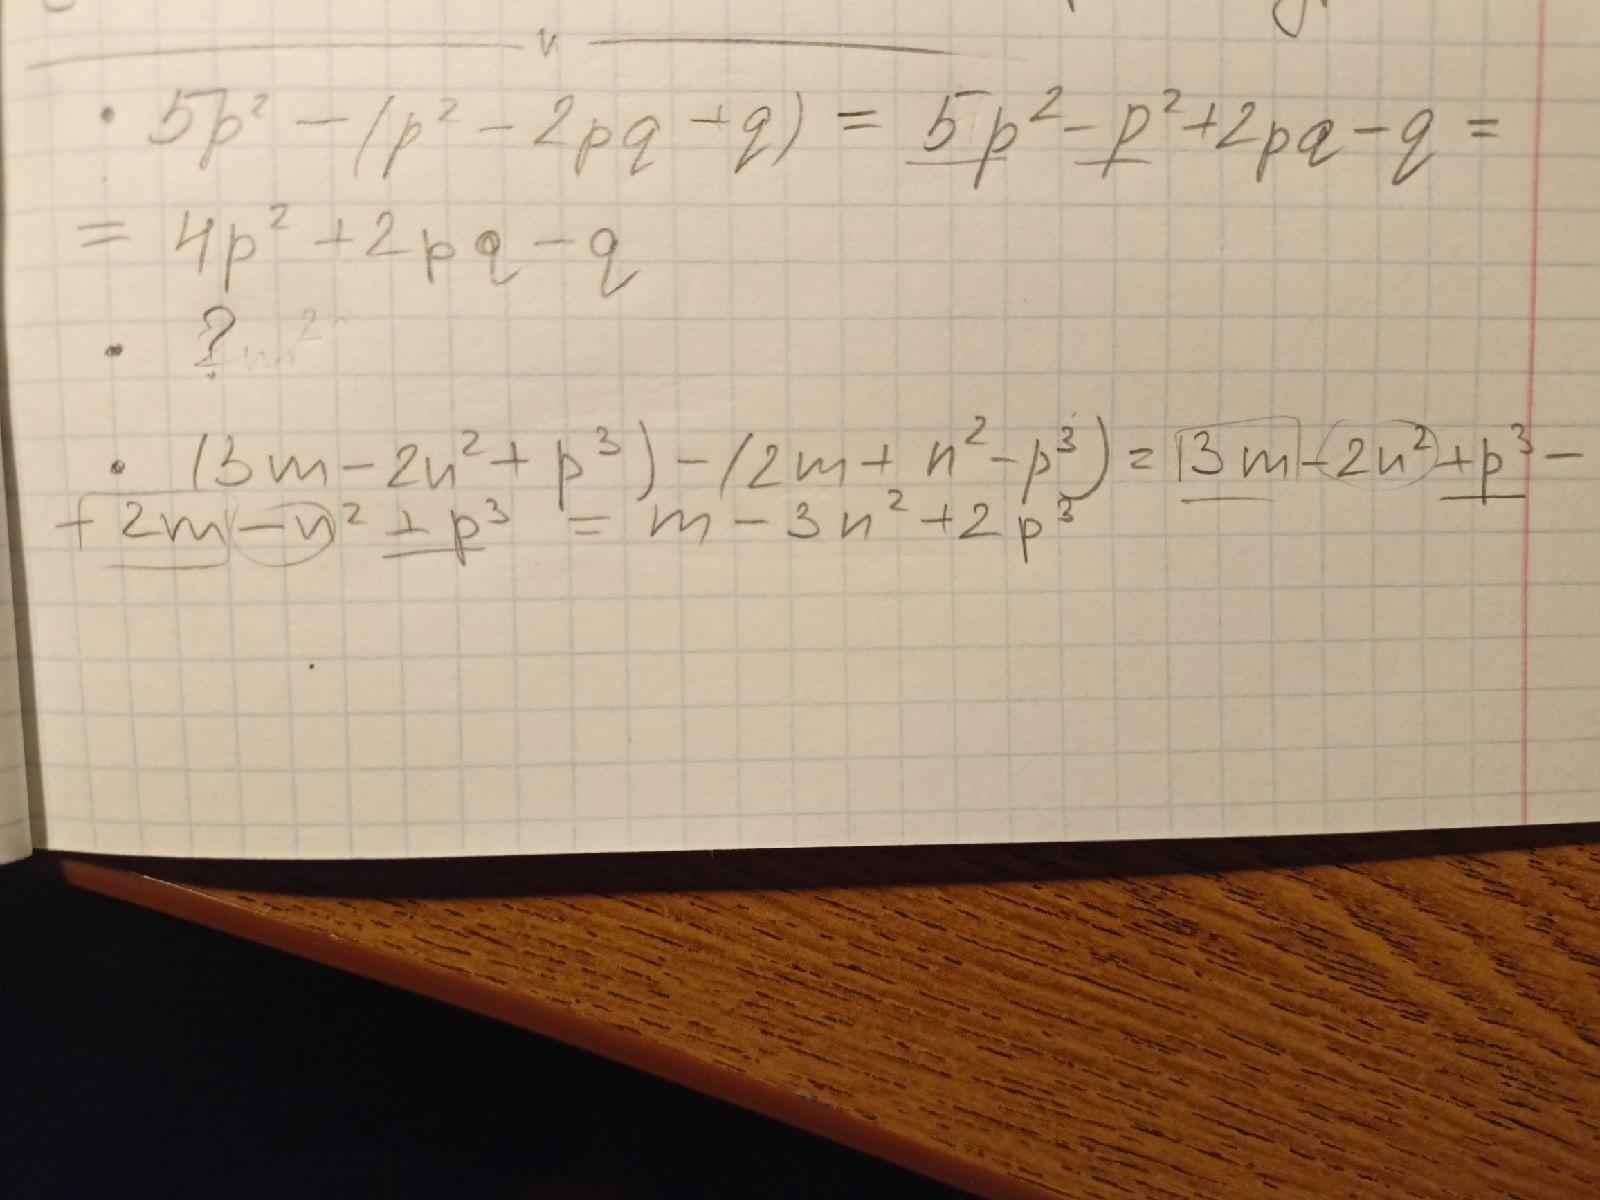 n
• 5p² - (p² - 2pq + q) = 5p² - p² + 2pq - q =
= 4p² + 2pq - q
• ?
• (3m - 2n² + p³) - (2m + n² - p³) = 3m - 2n² + p³ -
+ 2m - n² + p³ = m - 3n² + 2p³